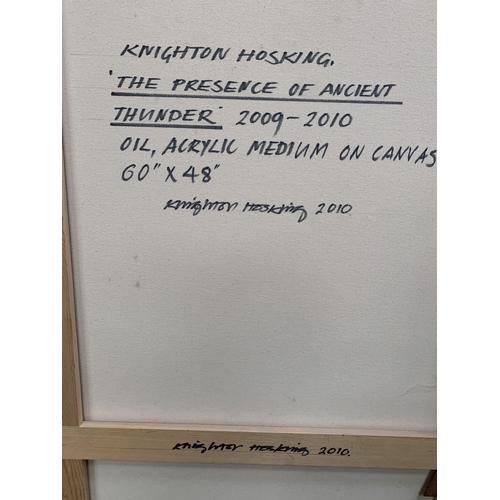 KNIGHTON HOSKING.
'THE PRESENCE OF ANCIENT
THUNDER' 2009-2010
OIL, ACRYLIC MEDIUM ON CANVAS
60" X 48"
Knighton Hosking 2010
Knighton Hosking 2010.